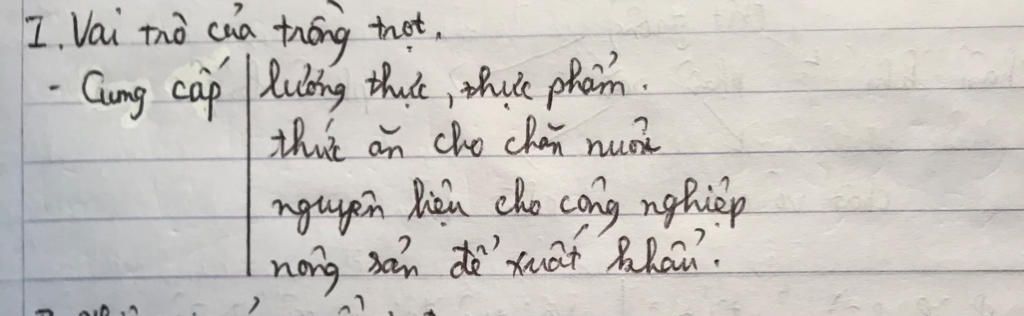 I. Vai trò của trồng trọt.
- Cung cấp | lương thực, thực phẩm.
thức ăn cho chăn nuôi
nguyên liệu cho công nghiệp
nông sản để xuất khẩu.